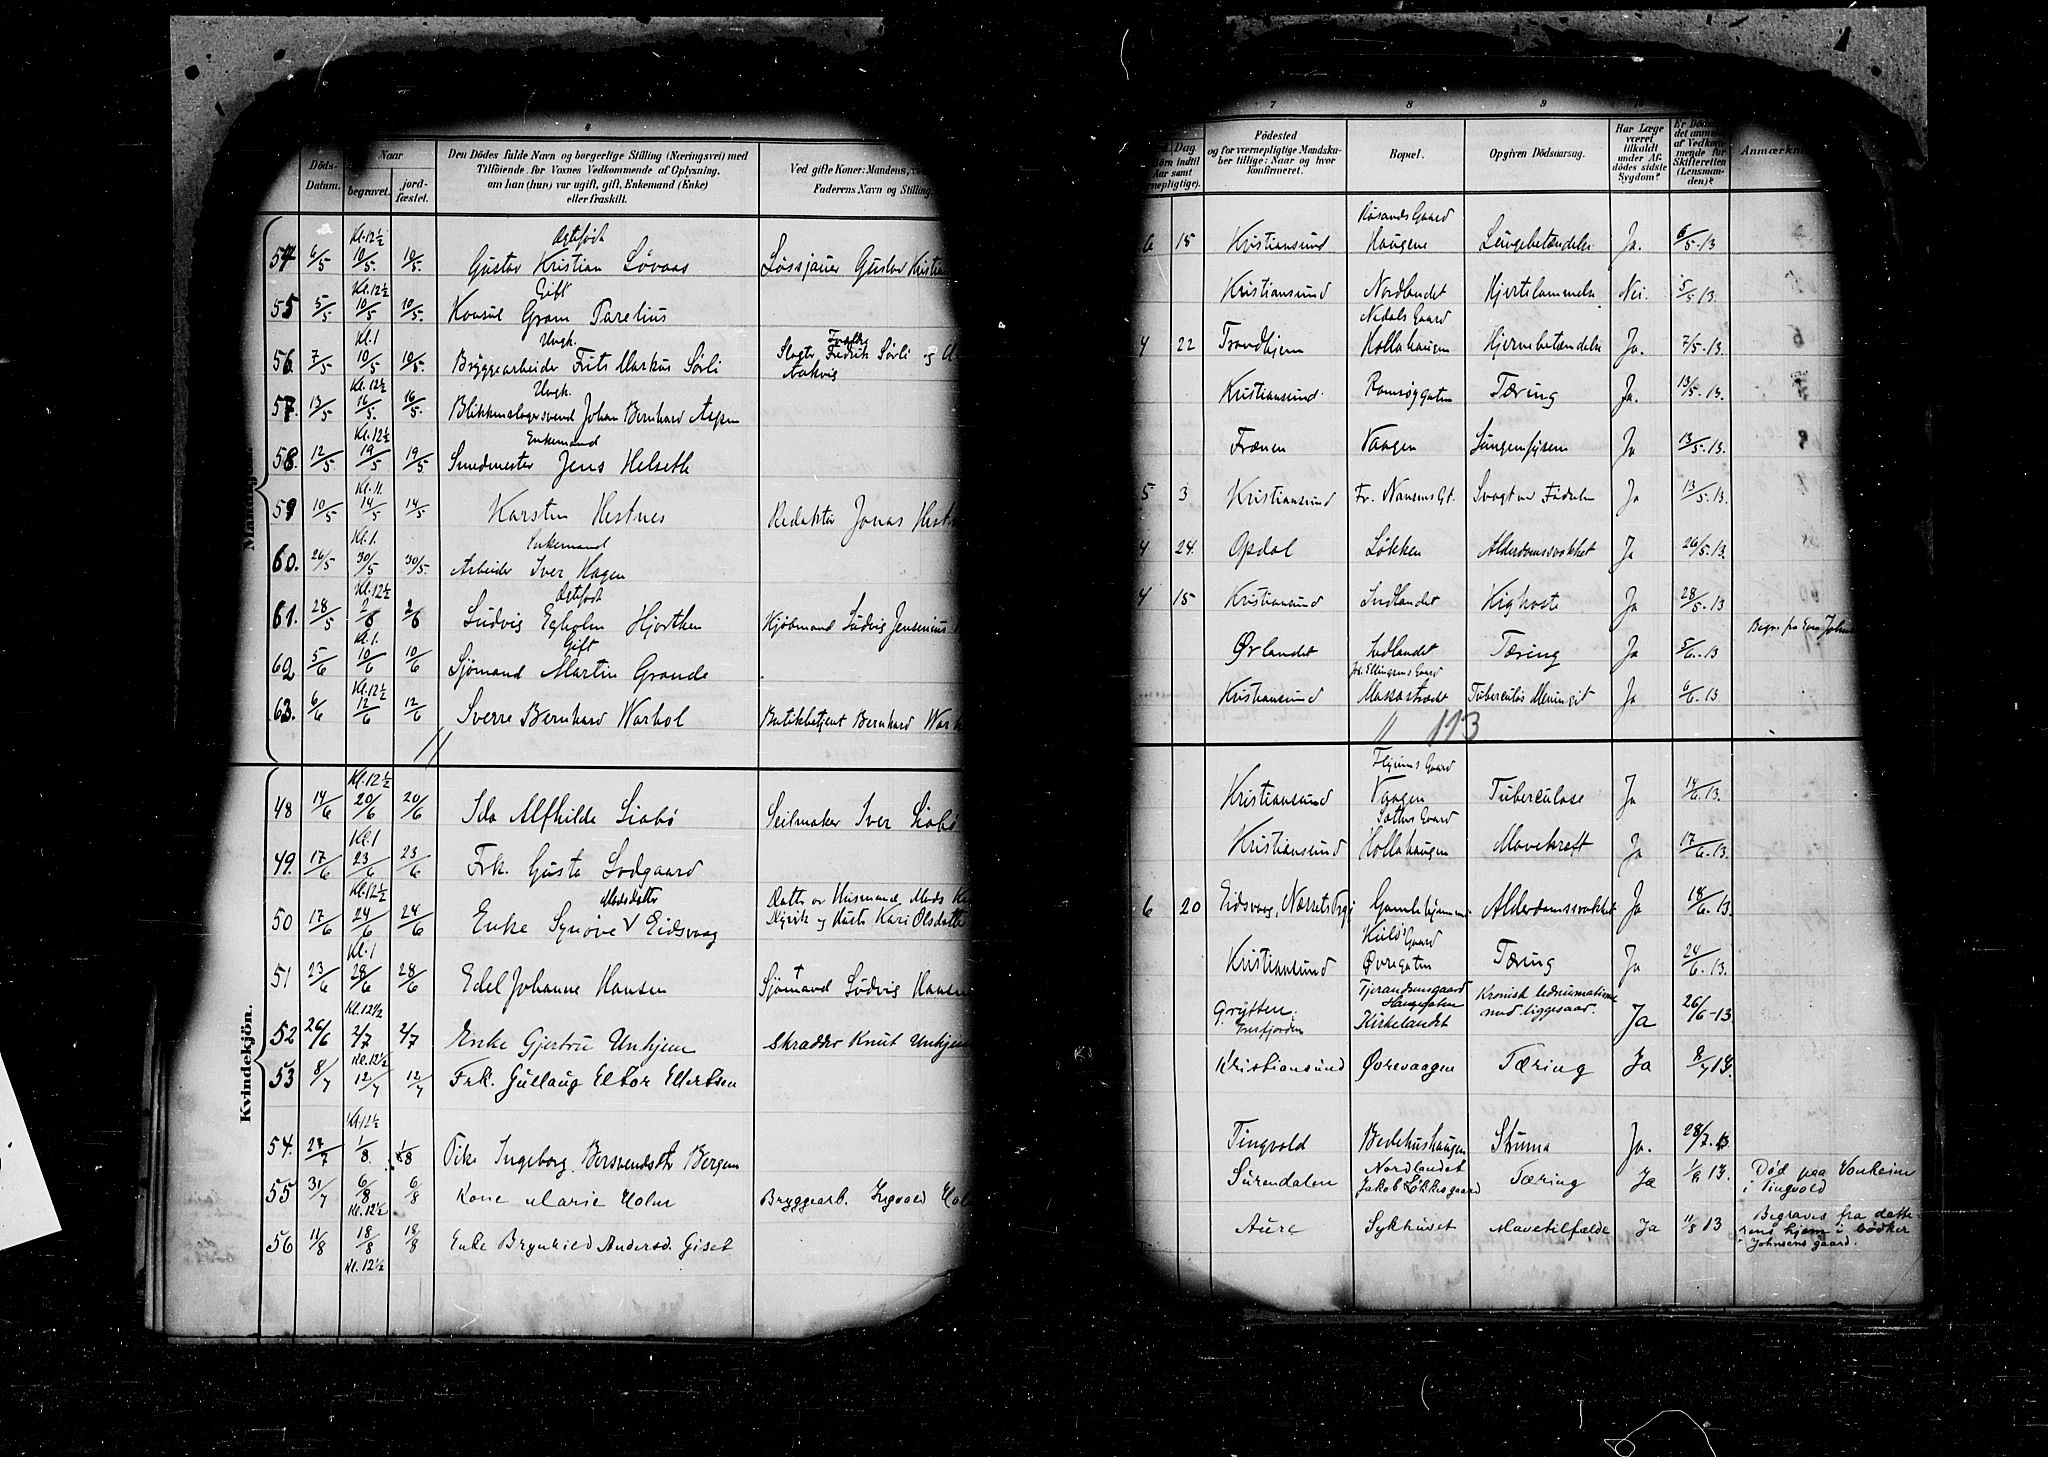 4
Döds-
Datum.
Naar
begravet.
jord-
fæstet.
Den Dödes fulde Navn og borgerlige Stilling (Næringsvei) med
Tilföiende for Voxnes Vedkommende af Oplysning,
om han (hun) var ugift, gift, Enkemand (Enke)
eller fraskilt.
Ved gifte Koner: Mandens,
Faderens Navn og Stilling.
Kl. 12½ Egtefødt
54 6/5 10/5. 10/5. Gustav Kristian Løvaas Løssjauer Gustav Kristian
Kl. 12½ Gift
55 5/5 10/5 10/5. Konsul Gram Parelius
Kl. 1 Ungk.
56. 7/5 10/5 10/5. Bryggearbeider Frits Markus Sørli Slagter Fredrik Sørli og
Aakvig
Kl. 12½ Ungk.
57. 13/5 16/5. 16/5. Blikkenslagersvend Johan Bernhard Aspen
Kl. 12½ Enkemand
58. 12/5 19/5 19/5 Smedmester Jens Helseth
Kl. 11.
59 10/5 14/5 14/5 Karsten Hestnes Redaktør Jonas Hest
Kl. 1. Enkemand
60. 26/5 30/5 30/5. Arbeider Iver Hagen
Kl. 12½ Egtefødt
61. 28/5 2/6 2/6 Ludvig Egholm Hjorthen Kjøbmand Ludvig Jensenius
Kl. 1. Gift
62 5/6 10/6 10/6 Sjømand Martin Grande
Kl. 12½
63. 6/6 12/6 12/6 Sverre Bernhard Warhol Butikbetjent Bernhard War
Kvindekjön.
Kl. 12½
48 14/6 20/6 20/6 Ida Alfhilde Liabø Seilmaker Iver Liabø
Kl. 1
49. 17/6 23/6 23/6 Frk. Gusta Lodgaard
Kl. 12½ Madsdatter
50 17/6 24/6 24/6 Enke Synøve V Eidsvaag Datter av Husmand Mads
og Hustr. Kari Olsdatter
Kl. 1
51 23/6 28/6 28/6 Edel Johanne Hansen Sjømand Ludvig Hansen
Kl. 12½
52 26/6 2/7 2/7 Enke Gjertru Unhjem Skrædder Knut Unhjem
Kl. 12½
53 8/7 12/7 12/7 Frk. Gullaug Ellertsen
Kl 12½
54. 27/7 1/8. 1/8 Pike Ingeborg Bersvendsdtr Bergem
55 31/7 6/8 6/8 Kone Marie Holm Bryggearb. Ingvald Hol
Kl. 12½
56 11/8 18/8 18/8 Enke Brynhild Andersd. Giset
Kl. 12½
7 8 9 10
Dag.
Födested
og for værnepligtige Mandska-
ber tillige: Naar og hvor
konfirmeret.
Bopæl.
Opgiven Dödsaarsag.
Har Læge
været
tilkaldt
under Af-
dödes sidste
Sygdom?
Er Döds
det anme
af Vedkom-
mende for
Skifteretten
(Lensman-
den)?
Anmærkn
Røsands Gaard
6 15 Kristiansund Haugene Lungebetændelse Ja. 6/5-13
Kristiansund Nordlandet Hjertelammelse Nei. 5/5 13.
Nedals Gaard
4 22 Trondhjem Hollahaugen Hjernebetændelse Ja. 7/5-13.
Kristiansund. Romsøggaten Tæring Ja. 13/5-13.
Frænen Vaagen Ja 13/5-13.
5 3 Kristiansund Fr. Nansens Gt. Svagt av Fødselen Ja 13/5-13.
4 24. Opdal Løkken Alderdomssvakhet Ja 26/5-13.
4 15 Kristiansund Indlandet Kighoste Ja 28/5-13
Begr. fra
Ørlandet Indlandet Tæring Ja 5/6.-13
Joh. Ellingsens Gaard
Kristiansund Massastrædet Tuberculøs Meningit Ja 6/6.13
113
Gaard
Kristiansund Vaagen Tuberculose Ja 14/6.13.
Gaard
Kristiansund Hollahaugen Mavekræft Ja 17/6.13.
6 20 Eidsvaag, Næssets Prgj Gamlehjemmet Alderdomssvakhet Ja 18/6.13.
Gaard
Kristiansund Øvregaten Tæring Ja 24/6.13.
Tjerandsensgaard Kronisk ledrumatisme
Haugegaten med liggesaar.
Grytten. Kirkelandet Ja 26/6-13
Kristiansund Øvrevaagen Tæring Ja 8/7 13.
Tingvold Bedehushaugen Struma Ja. 28/7.13
Nordlandet
Surendalen Jakob Løkkesgaard Tæring Ja 1/8 13. Død paa Vonheim
i Tingvold
Aure Sykehuset Mavetilfælde Ja 11/8 13 Begraves fra datte-
rens hjem i bødker
Johnsens gaard.